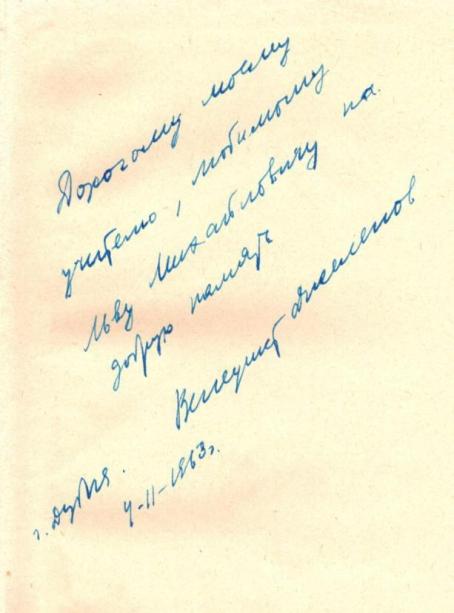 Дорогому моему
учителю, любимому
Льву Михайловичу на
добрую память
Венедикт Джелепов
г. Дубна.
4-II-1963г.